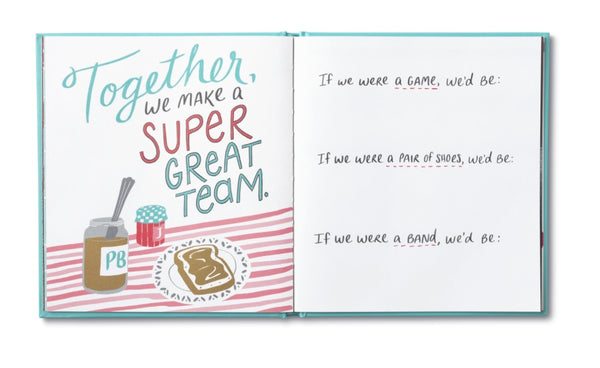 Together,
WE MAKE A
SUPER
GREAT
TEAM.
PB
If WE WERE A GAME, WE'D BE:
If WE WERE A PAIR OF SHOES, WE'D BE:
If WE WERE A BAND, WE'D BE: